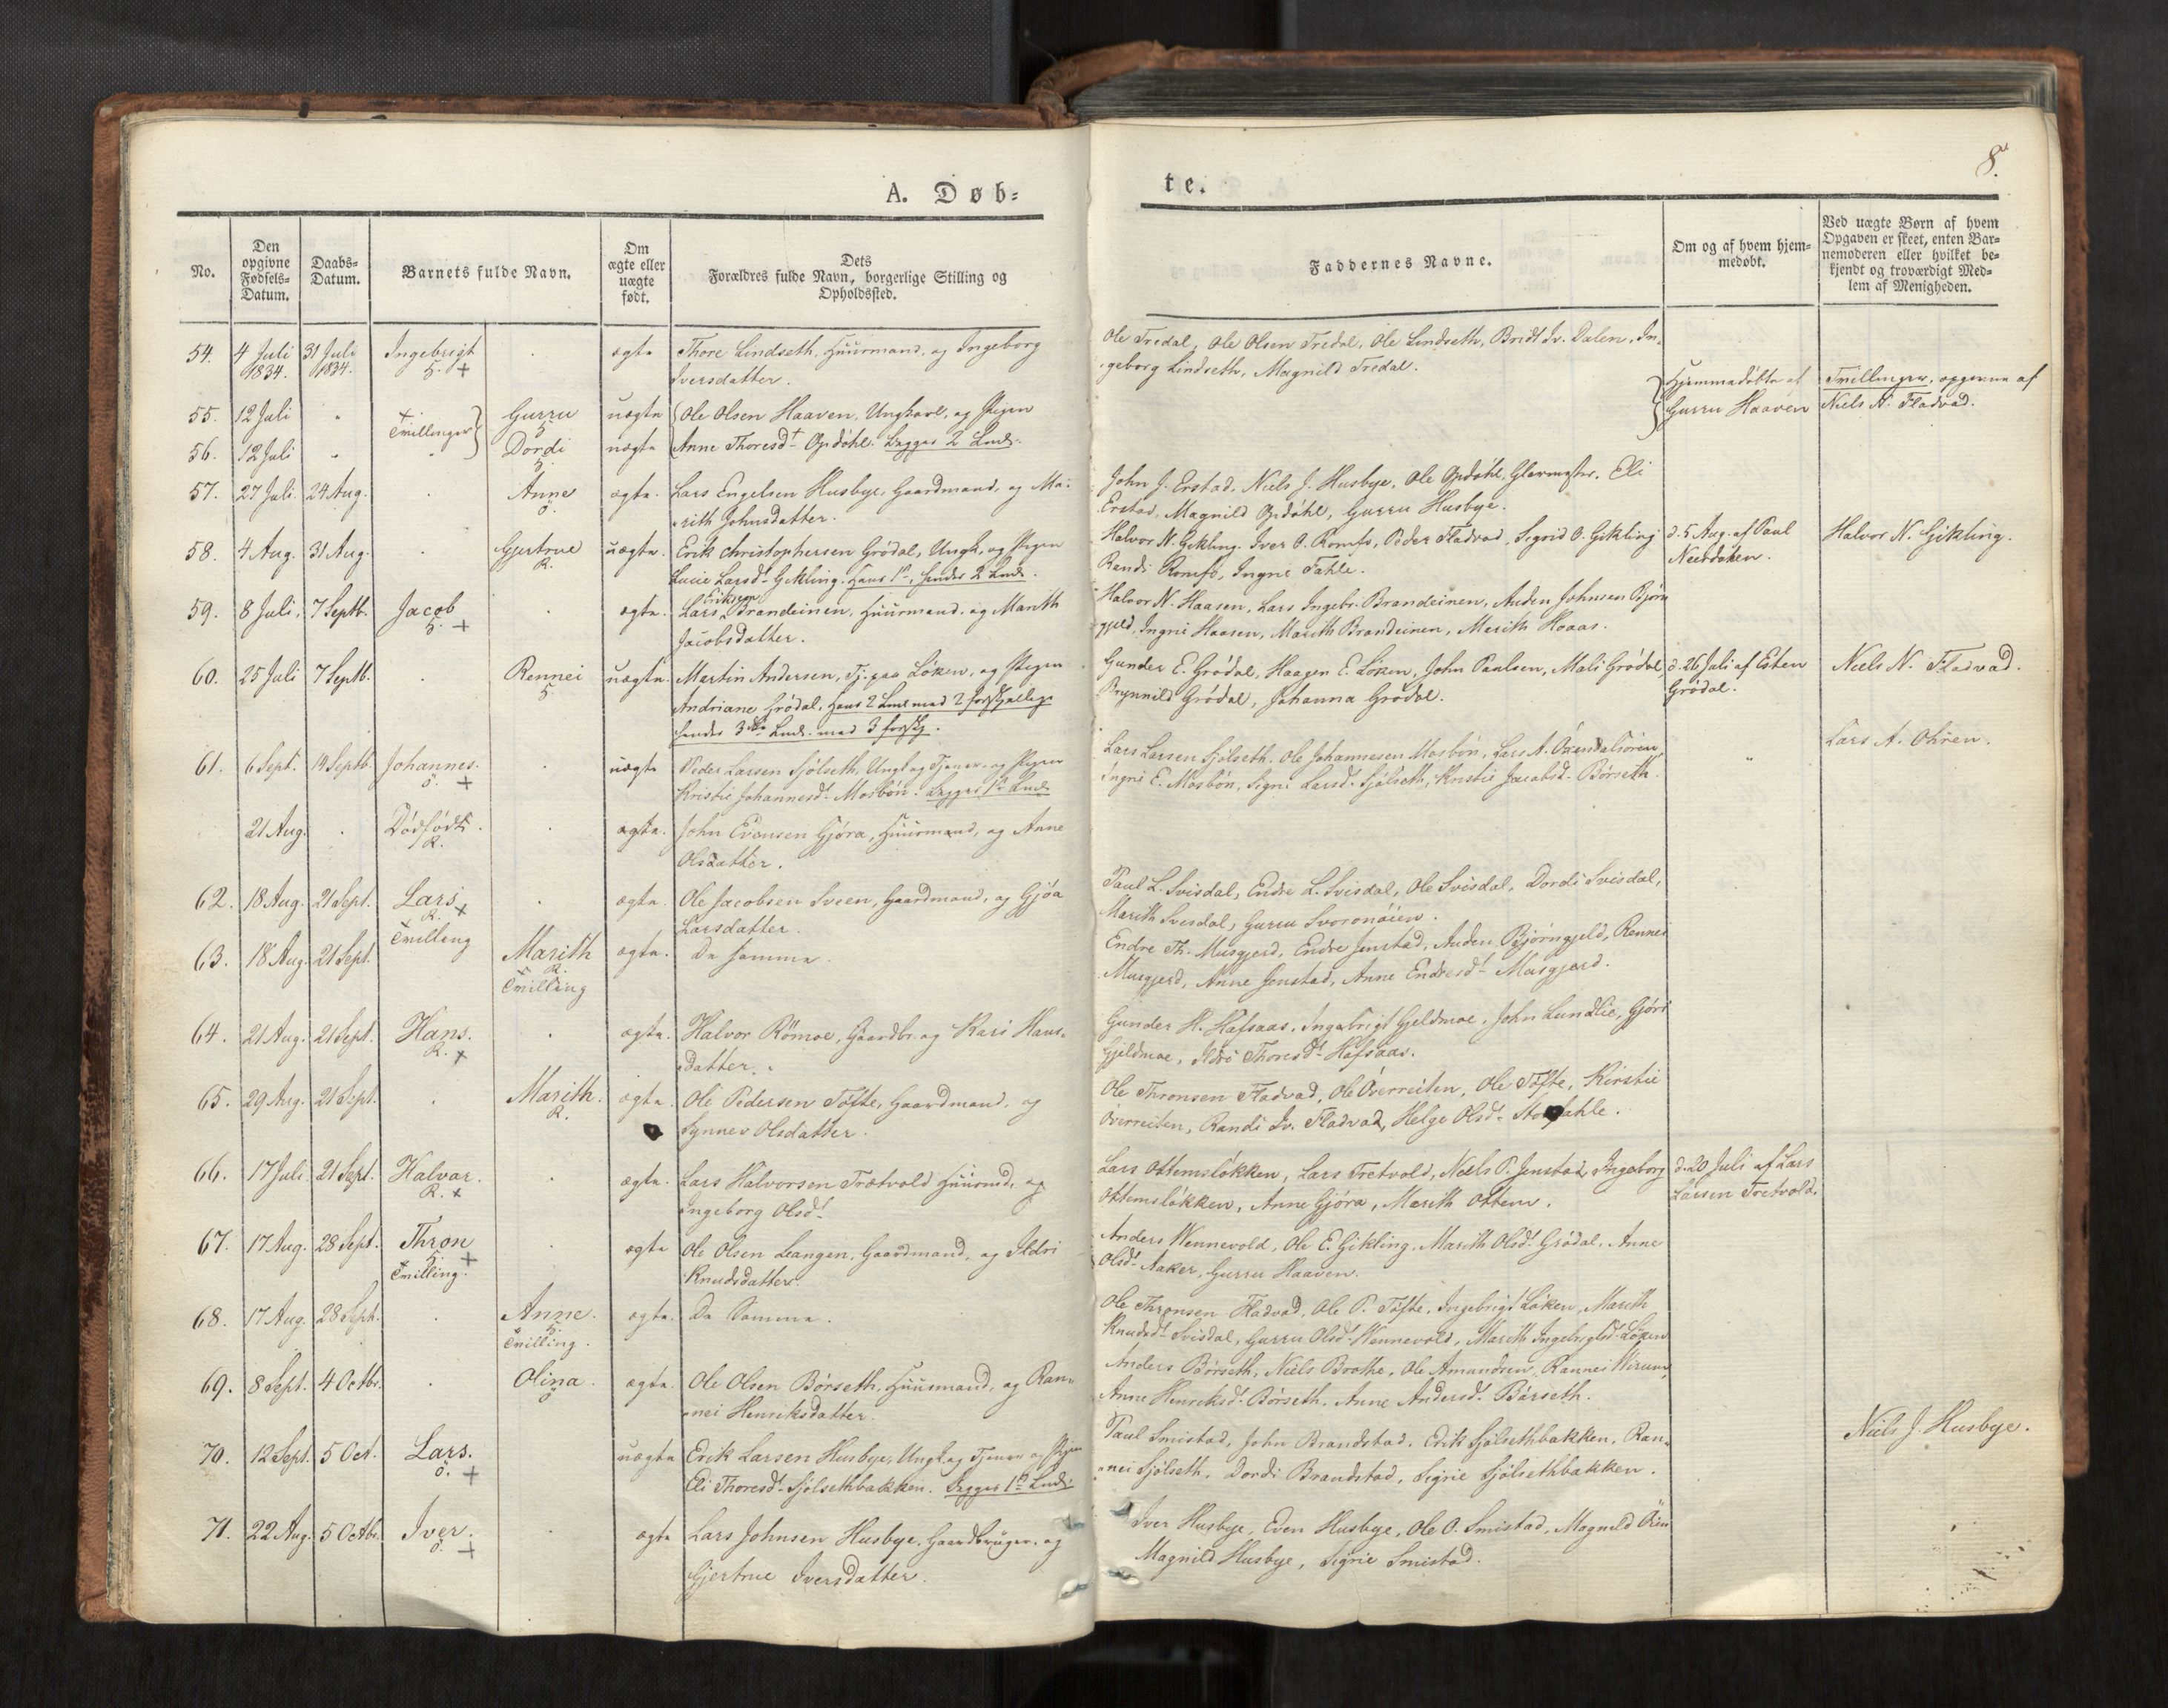 8.
A. Døb=
te.
No.
Den opgivne Fødsels-Datum.
Daabs-Datum.
Barnets fulde Navn.
Om ægte eller uægte født.
Dets Forældres fulde Navn, borgerlige Stilling og Opholdssted.
Faddernes Navne.
Om og af hvem hjem=medøbt.
Ved uægte Børn af hvem Opgaven er skeet, enten Bar=nemoderen eller hvilket be=kjendt og troværdigt Med=lem af Menigheden.
54. 4 Juli 1834. 31 Juli 1834. Ingebrigt ægte Thore Lindseth, Huusmand, og Ingeborg
Iversdatter.
Ole Tredal, Ole Olsen Tredal, Ole Lindseth, Bridt Iv. Dalen, In-
geborg Lindseth, Magnild Tredal.
55. 12 Juli " Tvillinger Gurru uægte Ole Olsen Haaven, Ungkarl, og Pigen
56. 12 Juli " Dordi uægte Anne Thoresdt Opdöhl. Begges 2 Leierm.
Hjemmedöbte af
Gurru Haaven
Tvillinger, opgivne af
Niels N. Fladvad.
57. 27 Juli. 24 Aug. Anne ægte. Lars Engelsen Husbye, Gaardmand, og Ma-
rith Johnsdatter.
John J. Erstad, Niels J. Husbye, Ole Opdöhl, Glarmester, Eli
Erstad, Magnild Opdöhl, Gurru Husbye.
58. 4 Aug. 31 Aug. Gjertrue R. uægte. Erik Christophersen Grödal, Ungk. og Pigen
Lucie Larsdt Gikling. Hans 1ste, hendes 2 Leierm.
Halvor N. Gikling, Iver O. Romfo, Peder Fladvad, Sigrid O. Gikling
Randi Romfo, Ingri Fahle.
d. 5 Aug. af Paul
Halvor N. Gikling.
59. 8 Juli, 7 Septb. Jacob ægte. Lars Eriksen Brandeinen, Huusmand, og Marith
Jacobsdatter.
Halvor N. Haasen, Lars Ingebr. Brandeinen, Auden Johnsen Björn
gjeld, Ingri Haasen, Marith Brandeinen, Marith Hoaas.
60. 25 Juli 7 Septb. Rennei uægte. Martin Andersen, Tj. paa Löken, og Pigen
Andriane Grödal. Hans 2 Leierm. med 2 forskjellige
hendes 3die Leierm. med 3 forskj.
Gunder E. Grödal, Haagen E. Löken, John Paulsen, Mali Grödal,
Brynnild Grödal, Johanna Grödal.
d. 26 Juli af Esten
Grödal.
Niels N. Fladvad.
61. 6 Sept. 14 Septb. Johannes. uægte Peder Larsen Sjölseth, Ungk. og Tjener, og Pigen
Kristie Johannesdt Mosbön. Begges 1ste Leierm.
Lars Larsen Sjölseth, Ole Johannesen Mosbön, Lars A. Öxendalsören
Ingri E. Mosbön, Signi Larsdt Sjölseth, Kristie Jacobsdt Börseth.
"
Lars A. Ohren.
21 Aug. Dödfödt R. ægte. John Evensen Gjöra, Huusmand, og Anne
Olsdatter.
62. 18 Aug. 21 Sept. Lars R. Tvilling ægte. Ole Jacobsen Sveen, Gaardmand, og Gjöa
Larsdatter.
Paul L. Svisdal, Endre L. Svisdal, Ole Svisdal, Dordi Svisdal,
Marith Svisdal, Gurru Svoronöien.
63. 18 Aug. 21 Sept. Marith R. Tvilling ægte. De samme.
Endre Th. Musgjerd, Endre Jenstad, Auden Björngjeld, Rennei
Musgjerd, Anne Jenstad, Anne Endresdt Musgjerd.
64. 21 Aug. 21 Sept. Hans. R. ægte. Halvor Römoe, Gaardbr. og Kari Hans-
datter.
Gunder H. Hafsaas, Ingebrigt Gjeldmoe, John Lundlie, Gjöri
Gjeldmoe, Ildri Thoresdt Hafsaas.
65. 29 Aug. 21 Sept. Marith. R. ægte. Ole Pedersen Töfte, Gaardmand, og
Synnev Olsdatter.
Ole Thronsen Fladvad, Ole Överreiten, Ole Töfte, Kirstie
Överreiten, Randi Iv. Fladvad, Helge Olsdt Storfahle.
66. 17 Juli. 21 Sept. Halvar. R. ægte. Lars Halvorsen Trætvold Huusmd, og
Ingeborg Olsdt
Lars Ottemslökken, Lars Tretvold, Niels P. Jenstad, Ingeborg
Ottemslökken, Anne Gjöra, Marith Ottem.
d. 20 Juli af Lars
Larsen Tretvold.
67. 17 Aug. 28 Sept. Thron Tvilling. ægte Ole Olsen Leangen, Gaardmand, og Ildri
Knudsdatter.
Anders Wennevold, Ole E. Gikling, Marith Olsdt Grödal, Anne
Olsdt Aaker, Gurru Haaven.
68. 17 Aug. 28 Sept. Anne. Tvilling. ægte. De Samme.
Ole Thronsen Fladvad, Ole P. Töfte, Ingebrigt Löken, Marith
Knudsdt Svisdal, Gurru Olsdt Wennevold, Marith Ingebrigtsdt Löken
69. 8 Sept. 4 Octbr. Olina. ægte. Ole Olsen Börseth, Huusmand, og Ran-
nei Henriksdatter.
Anders Börseth, Niels Brothe, Ole Amundsen, Rannei Wirum,
Anne Henriksdt Börseth, Anne Andersdt Börseth.
70. 12 Sept. 5 Oct. Lars. uægte Erik Larsen Husbye, Ungk. og Tjener og Pigen
Eli Thoresdt Sjölsethbakken. Begges 1ste Leierm.
Paul Smistad, John Brandstad, Erik Sjölsethbakken, Ran-
nei Sjölseth, Dordi Brandstad, Sigrie Sjölsethbakken.
Niels J. Husbye.
71. 22 Aug. 5 Octbr. Iver. ægte Lars Johnsen Husbye, Gaardbruger, og
Gjertrue Iversdatter.
Iver Husbye, Even Husbye, Ole O. Smistad, Magnild Ören
Magnild Husbye, Sigrie Smistad.